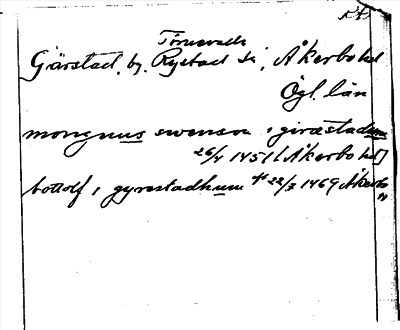 Törnevalla
Gärstad, by. Rystad sn, Åkerbo hd
Ögl. län
mongnus swenson i giræstadum
26/4 1451 [Åkerbo hd]
bottolf i gyrestadhum 22/3 1469 Åkerbo
"